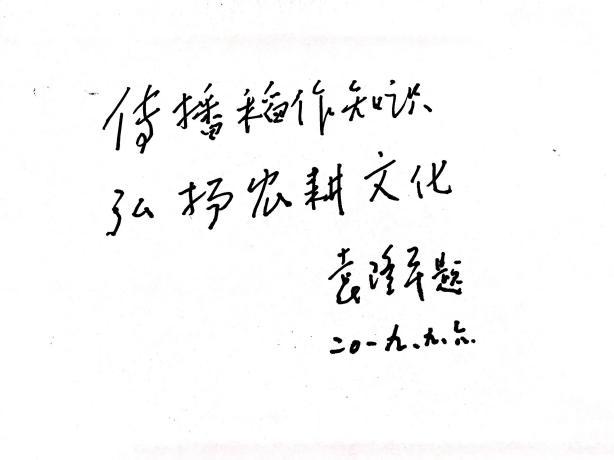 传播稻作知识
弘扬农耕文化
袁隆平题
二〇一九.九.六.